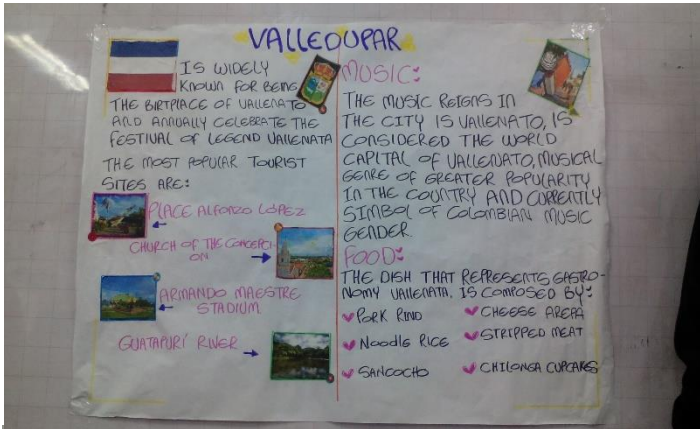 VALLEDUPAR
IS WIDELY
KNOWN FOR BEING
THE BIRTPLACE OF VALLENATO
AND ANNUALLY CELEBRATE THE
FESTIVAL OF LEGEND VALLENATA
THE MOST POPULAR TOURIST
SITES ARE:
PLACE ALFONZO LÓPEZ
CHURCH OF THE CONCEPCI-
ON
ARMANDO MAESTRE
STADIUM
GUATAPURÍ RIVER
MUSIC:
THE MUSIC REIGNS IN
THE CITY IS VALLENATO, IS
CONSIDERED THE WORLD
CAPITAL OF VALLENATO, MUSICAL
GENRE OF GREATER POPULARITY
IN THE COUNTRY AND CURRENTLY
SIMBOL OF COLOMBIAN MUSIC
GENDER.
FOOD:
THE DISH THAT REPRESENTS GASTRO-
NOMY VALLENATA, IS COMPOSED BY:
PORK RIND
NOODLE RICE
SANCOCHO
CHEESE AREPA
STRIPPED MEAT
CHILONGA CUPCAKES